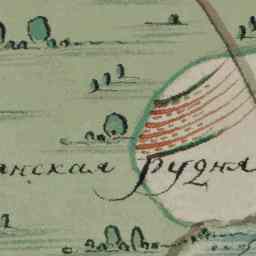 анская рудня